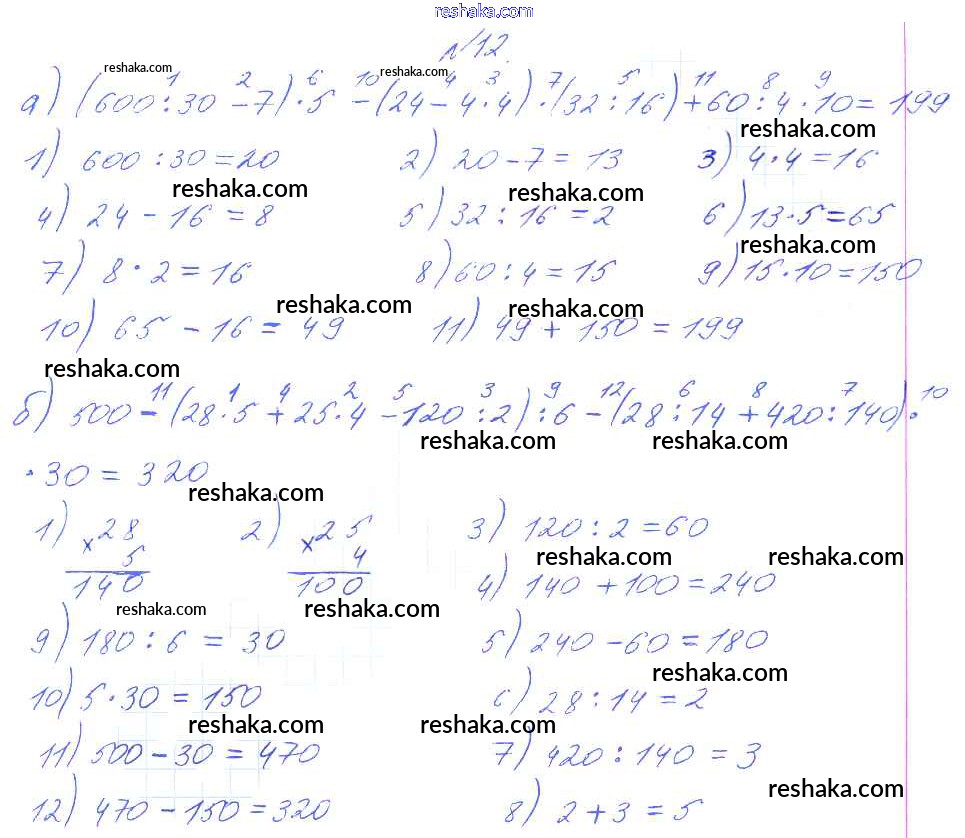 reshaka.com
№12.
reshaka.com reshaka.com
а) (600 : 30 - 7) · 5 - (24 - 4 · 4) · (32 : 16) + 60 : 4 · 10 = 199
reshaka.com
1) 600 : 30 = 20 2) 20 - 7 = 13 3) 4 · 4 = 16
reshaka.com reshaka.com
4) 24 - 16 = 8 5) 32 : 16 = 2 6) 13 · 5 = 65
reshaka.com
7) 8 · 2 = 16 8) 60 : 4 = 15 9) 15 · 10 = 150
reshaka.com reshaka.com
10) 65 - 16 = 49 11) 49 + 150 = 199
reshaka.com
б) 500 - (28 · 5 + 25 · 4 - 120 : 2) : 6 - (28 : 14 + 420 : 140) ·
reshaka.com reshaka.com
· 30 = 320
reshaka.com
1) × 28 2) × 25 3) 120 : 2 = 60
5 4 reshaka.com reshaka.com
140 100 4) 140 + 100 = 240
reshaka.com reshaka.com
9) 180 : 6 = 30 5) 240 - 60 = 180
reshaka.com
10) 5 · 30 = 150 6) 28 : 14 = 2
reshaka.com reshaka.com
11) 500 - 30 = 470 7) 420 : 140 = 3
reshaka.com
12) 470 - 150 = 320 8) 2 + 3 = 5